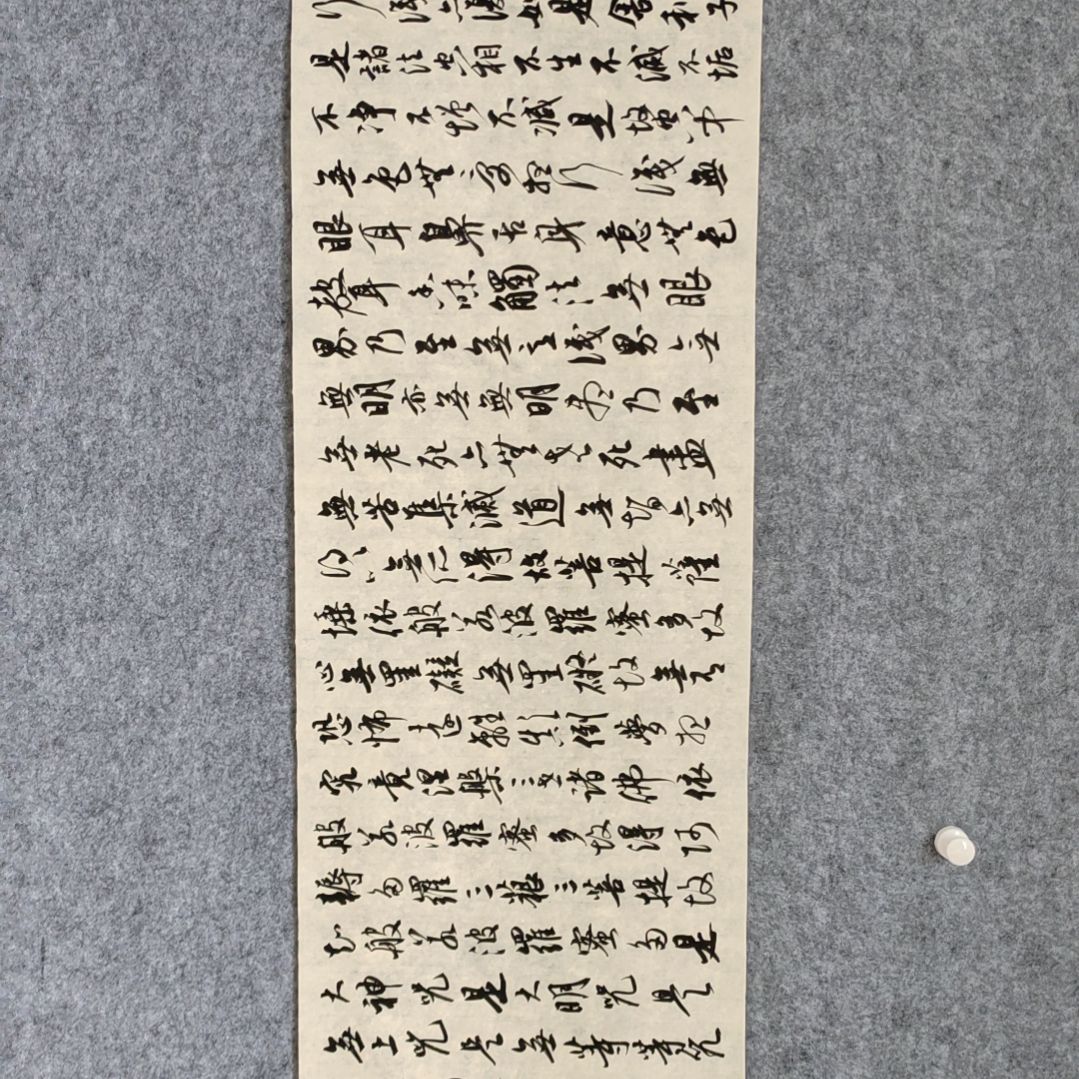 行識亦復如是舍利子
是諸法空相不生不滅不垢
不淨不增不減是故空中
無色無受想行識無
眼耳鼻舌身意無色
聲香味觸法無眼
界乃至無意識界亦無
無明亦無無明盡乃至
無老死亦無老死盡
無苦集滅道無智亦無
得以無所得故菩提薩
埵依般若波羅蜜多故
心無罣礙無罣礙故無有
恐怖遠離顛倒夢想
究竟涅槃三世諸佛依
般若波羅蜜多故得阿
耨多羅三藐三菩提故
知般若波羅蜜多是
大神咒是大明咒是
無上咒是無等等咒